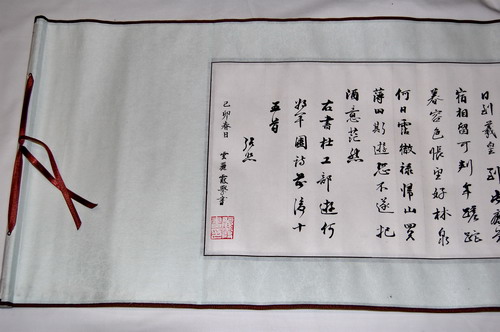 日到羲皇 到此應
宿相留可判年蹉跎
暮容色悵望好林泉
何日霑微祿歸山買
薄田斯遊恐不遂把
酒意茫然
右書杜工部遊何
將軍園詩前後十
五首
張照
己卯春日